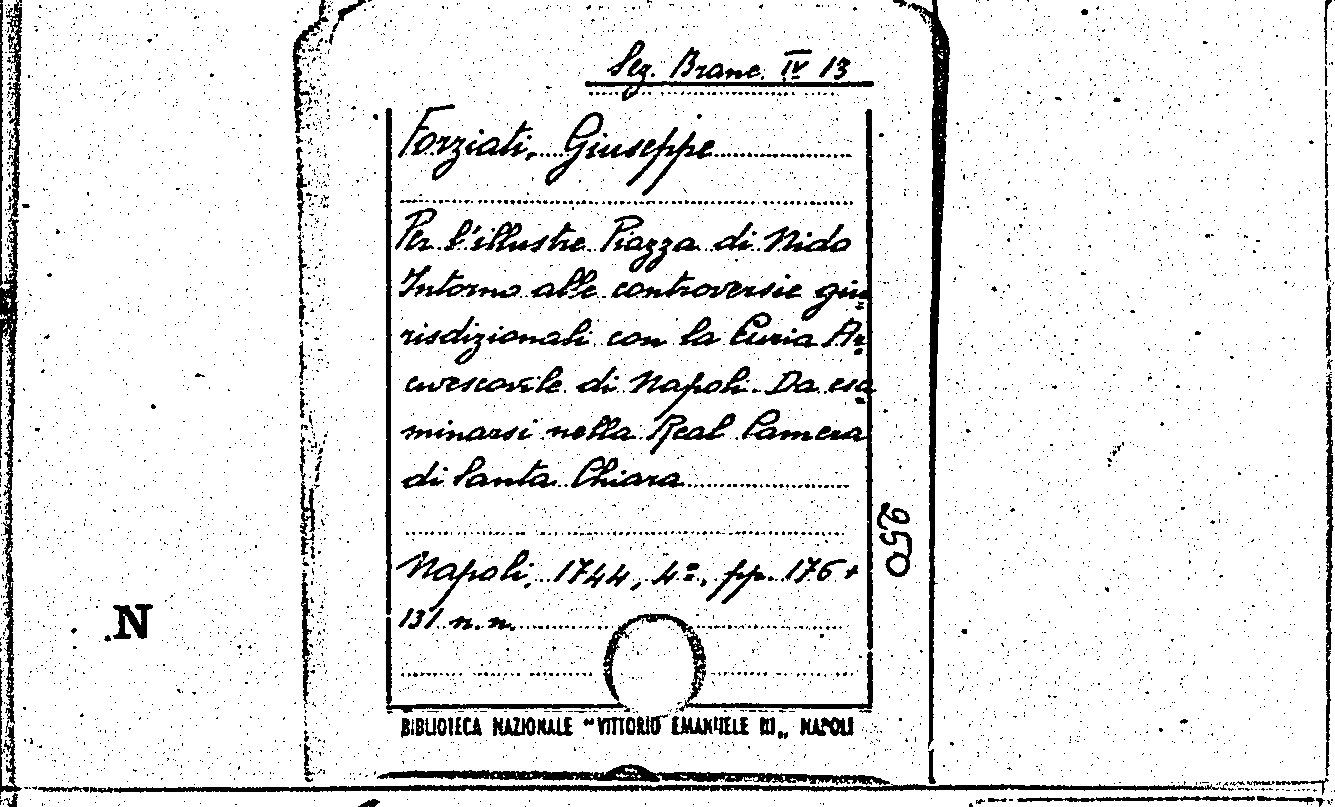 Sez. Branc. IV 13
Forziati, Giuseppe
Per l'illustre Piazza di Nido
Intorno alle controversie giu=
risdizionali con la Curia Ar=
civescovile di Napoli. Da esa=
minarsi nella Real Camera
di Santa Chiara
250
Napoli, 1744, 4º, pp. 176 +
131 n.n.
N
BIBLIOTECA NAZIONALE "VITTORIO EMANUELE III„ NAPOLI